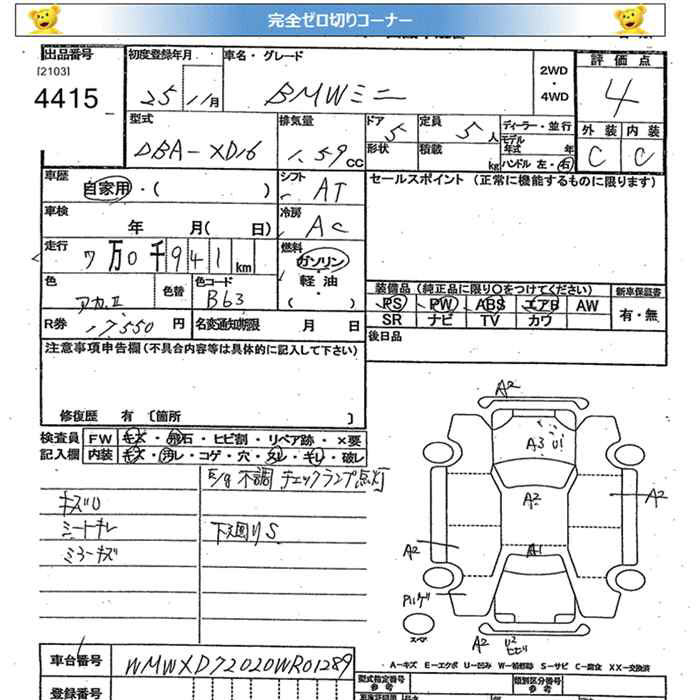 完全ゼロ切りコーナー
出品番号 初度登録年月 車名・グレード 評価点
[2103]
4415 25 11月 BMWミニ 2WD・4WD 4
型式 排気量 ドア 定員 ディーラー・並行 外装 内装
DBA-XD16 1.59cc 5 5人 モデル年式 年 C C
形状 積載 kg ハンドル 左・右
車歴 シフト セールスポイント (正常に機能するものに限ります)
自家用・( ) AT
車検 冷房
年 月( 日) AC
走行 燃料
7万0千941km ガソリン・軽油
( )
色 色替 色コード 装備品 (純正品に限り○をつけてください) 新車保証書
アカII B63 PS PW ABS エアB AW 有・無
SR ナビ TV カワ
R券 17550円 名変通知期限 月 日 後日品
注意事項申告欄 (不具合内容等は具体的に記入して下さい)
修復歴 有 [箇所 ]
検査員 FW キズ・飛石・ヒビ割・リペア跡・×要
記入欄 内装 キズ・汚レ・コゲ・穴・スレ・キレ・破レ
E/g 不調 チェックランプ点灯
キズU
シートキレ 下廻りS
ミラーキズ
A2
A3 U1
A2 A2
A2 A1
スペア
A2 U2
A-キズ E-エクボ U-凹み W-補修跡 S-サビ C-腐食 XX-交換済
車台番号 WMWXD72020WR01289
登録番号
型式指定番号 参考 類別区分番号 参考